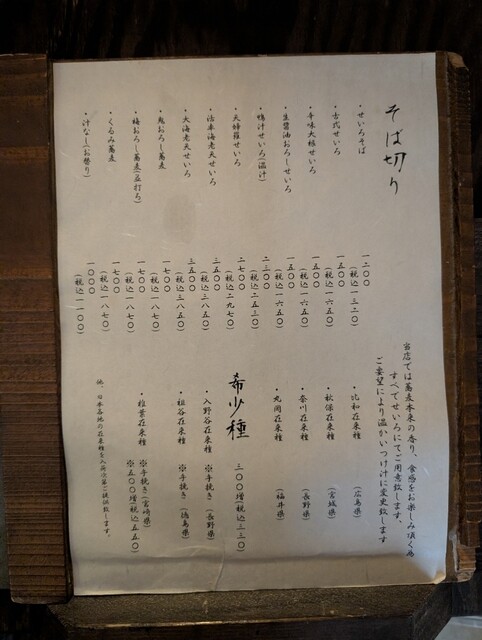 そば切り
・せいろそば
一二〇〇
(税込一三二〇)
・古代せいろ
一五〇〇
(税込一六五〇)
・辛味大根せいろ
一五〇〇
(税込一六五〇)
・生醤油おろしせいろ
一五〇〇
(税込一六五〇)
・鴨汁せいろ(温汁)
二三〇〇
(税込二五三〇)
・天婦羅せいろ
二七〇〇
(税込二九七〇)
・活車海老天せいろ
三五〇〇
(税込三八五〇)
・大海老天せいろ
三五〇〇
(税込三八五〇)
・鬼おろし蕎麦
一七〇〇
(税込一八七〇)
・梅おろし蕎麦(並打ち)
一七〇〇
(税込一八七〇)
・くるみ蕎麦
一七〇〇
(税込一八七〇)
・汁なし(お替り)
一〇〇〇
(税込一一〇〇)
当店では蕎麦本来の香り、食感をお楽しみ頂く為
すべてせいろにてご用意致します、
ご要望により温かいつけ汁に変更致します
・比和在来種 (広島県)
・秋保在来種 (宮城県)
・奈川在来種 (長野県)
・丸岡在来種 (福井県)
希少種 三〇〇増(税込三三〇)
・入野谷在来種 ※手挽き(長野県)
・祖谷在来種 ※手挽き(徳島県)
・椎葉在来種 ※手挽き(宮崎県)
※五〇〇増(税込五五〇)
他、日本各地の在来種を入荷次第ご提供致します。